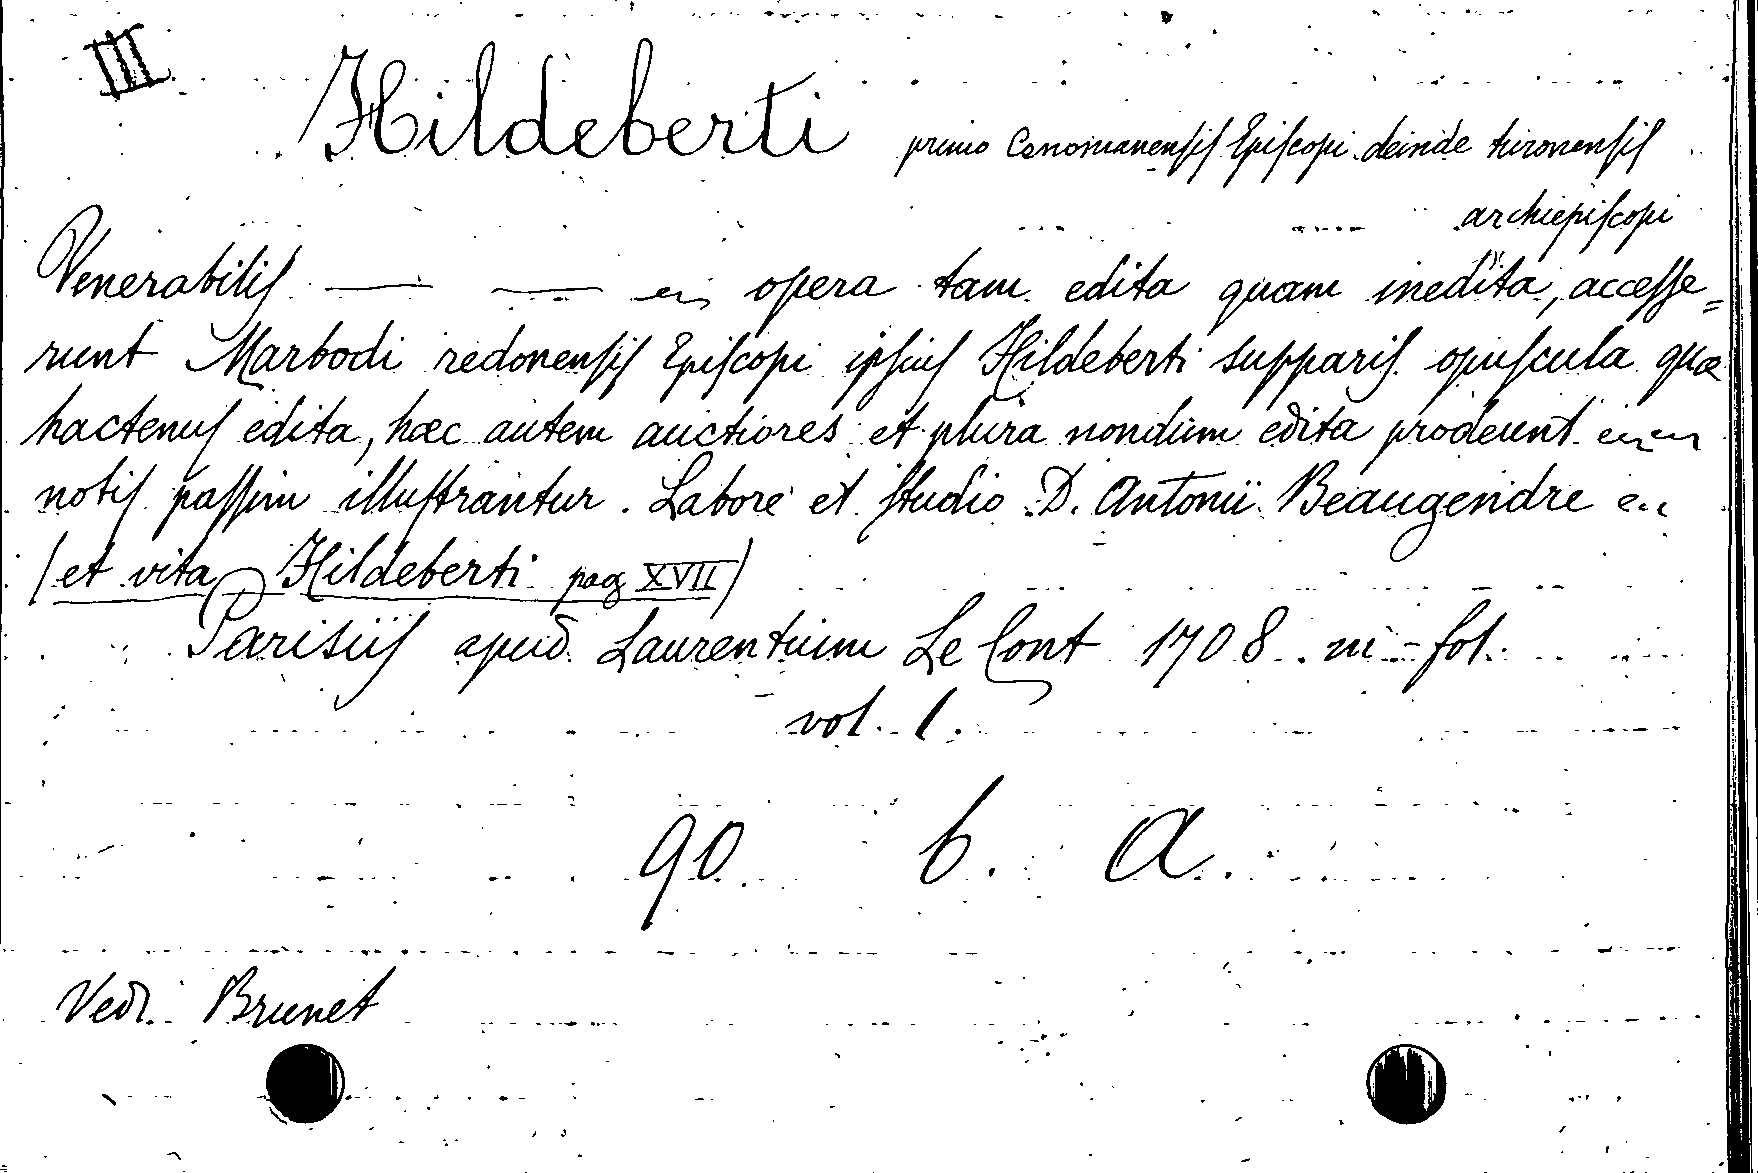 III
Hildeberti primo Cenomanensis Episcopi deinde turonensis
archiepiscopi
Venerabilis — — opera tam edita quam inedita, accesse=
runt Marbodi redonensis Episcopi ipsius Hildeberti supparis opuscula quæ
hactenus edita, hæc autem auctiores et plura nondum edita prodeunt
notis passim illustrantur. Labore et studio D. Antonii Beaugendre
(et vita Hildeberti pag XVII)
Parisiis apud Laurentium Le Cont 1708 in-fol.
vol. 1.
90 b. A.
Vedi Brunet